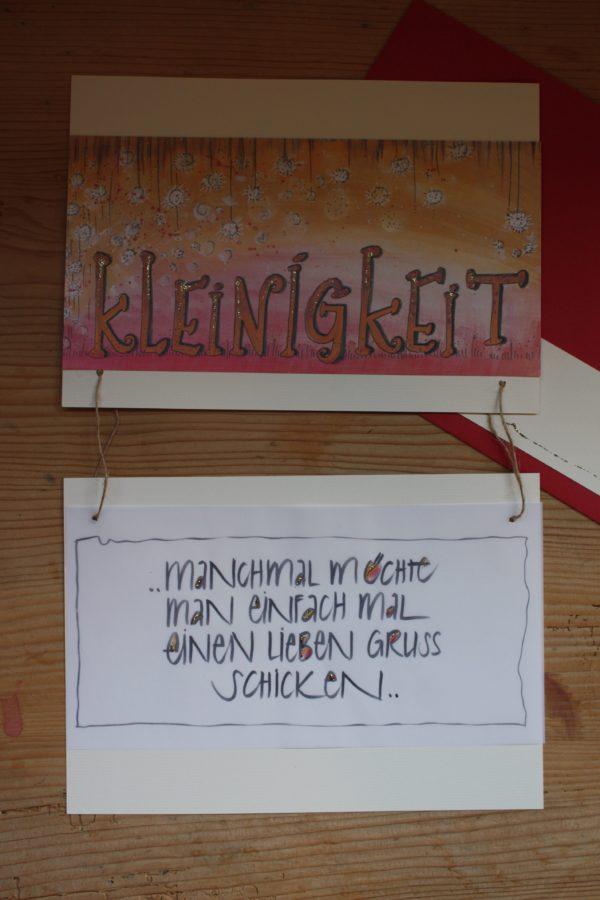 KLEINIGKEIT
..MANCHMAL MÖCHTE
MAN EINFACH MAL
EINEN LIEBEN GRUSS
SCHICKEN..